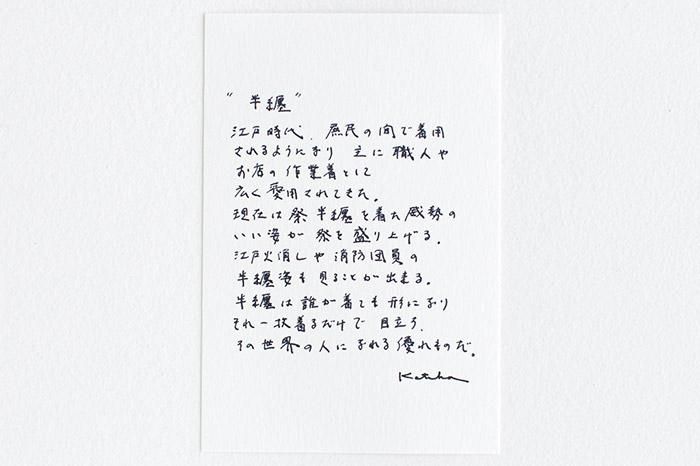 " 半纏 "
江戸時代、庶民の間で着用
されるようになり 主に 職人や
お店の 作業着として
広く愛用されてきた。
現在は祭半纏を着た威勢の
いい姿が 祭を盛り上げる。
江戸火消しや消防団員の
半纏姿も見ることが出来る。
半纏は誰が着ても形になり
それ一枚着るだけで 目立つ、
その世界の人になれる優れものだ。